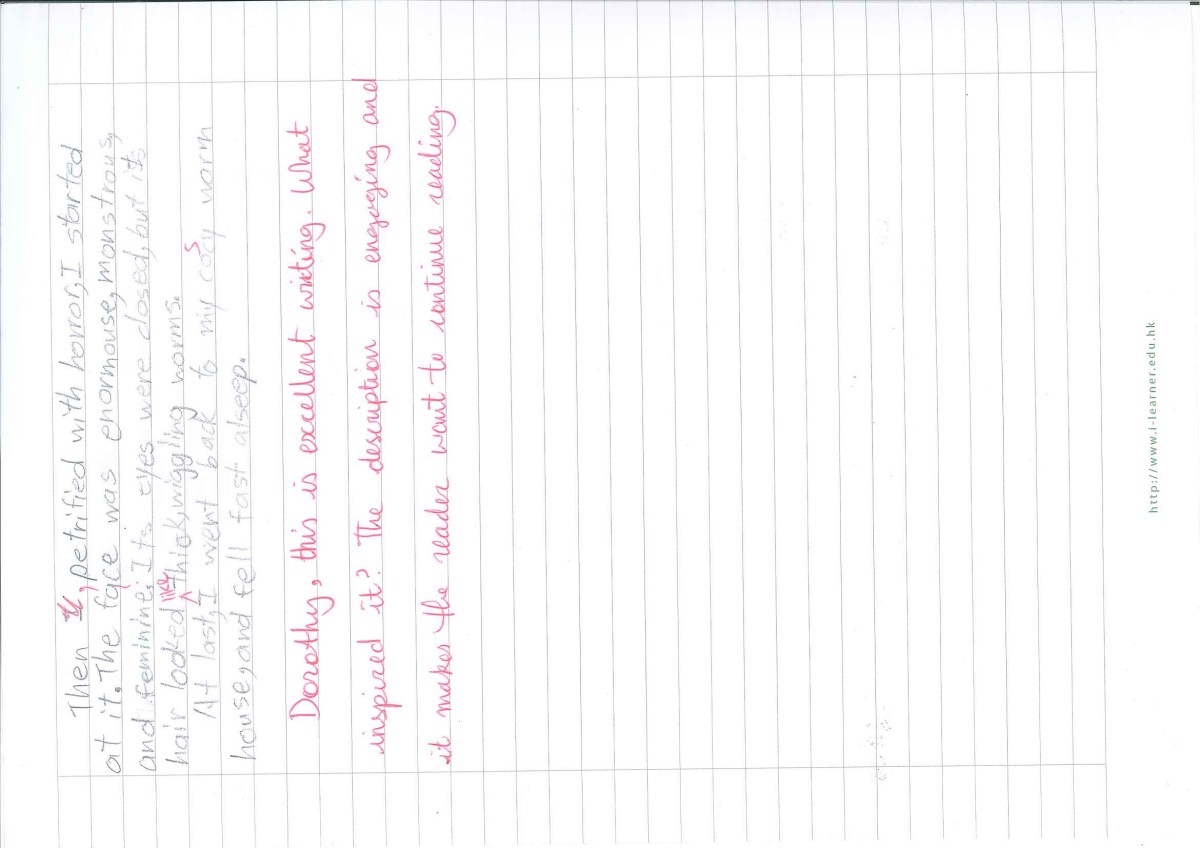 Then , petrified with horror, I started
at it. The face was enormouse, monstrous,
and feminine; Its eyes were closed, but its
hair looked like thick, wiggling worms.
At last, I went back to my cocy warm
s
house, and fell fast alseep.
Dorothy, this is excellent writing. What
inspired it? The description is engaging and
it makes the reader want to continue reading.
http://www.i-learner.edu.hk